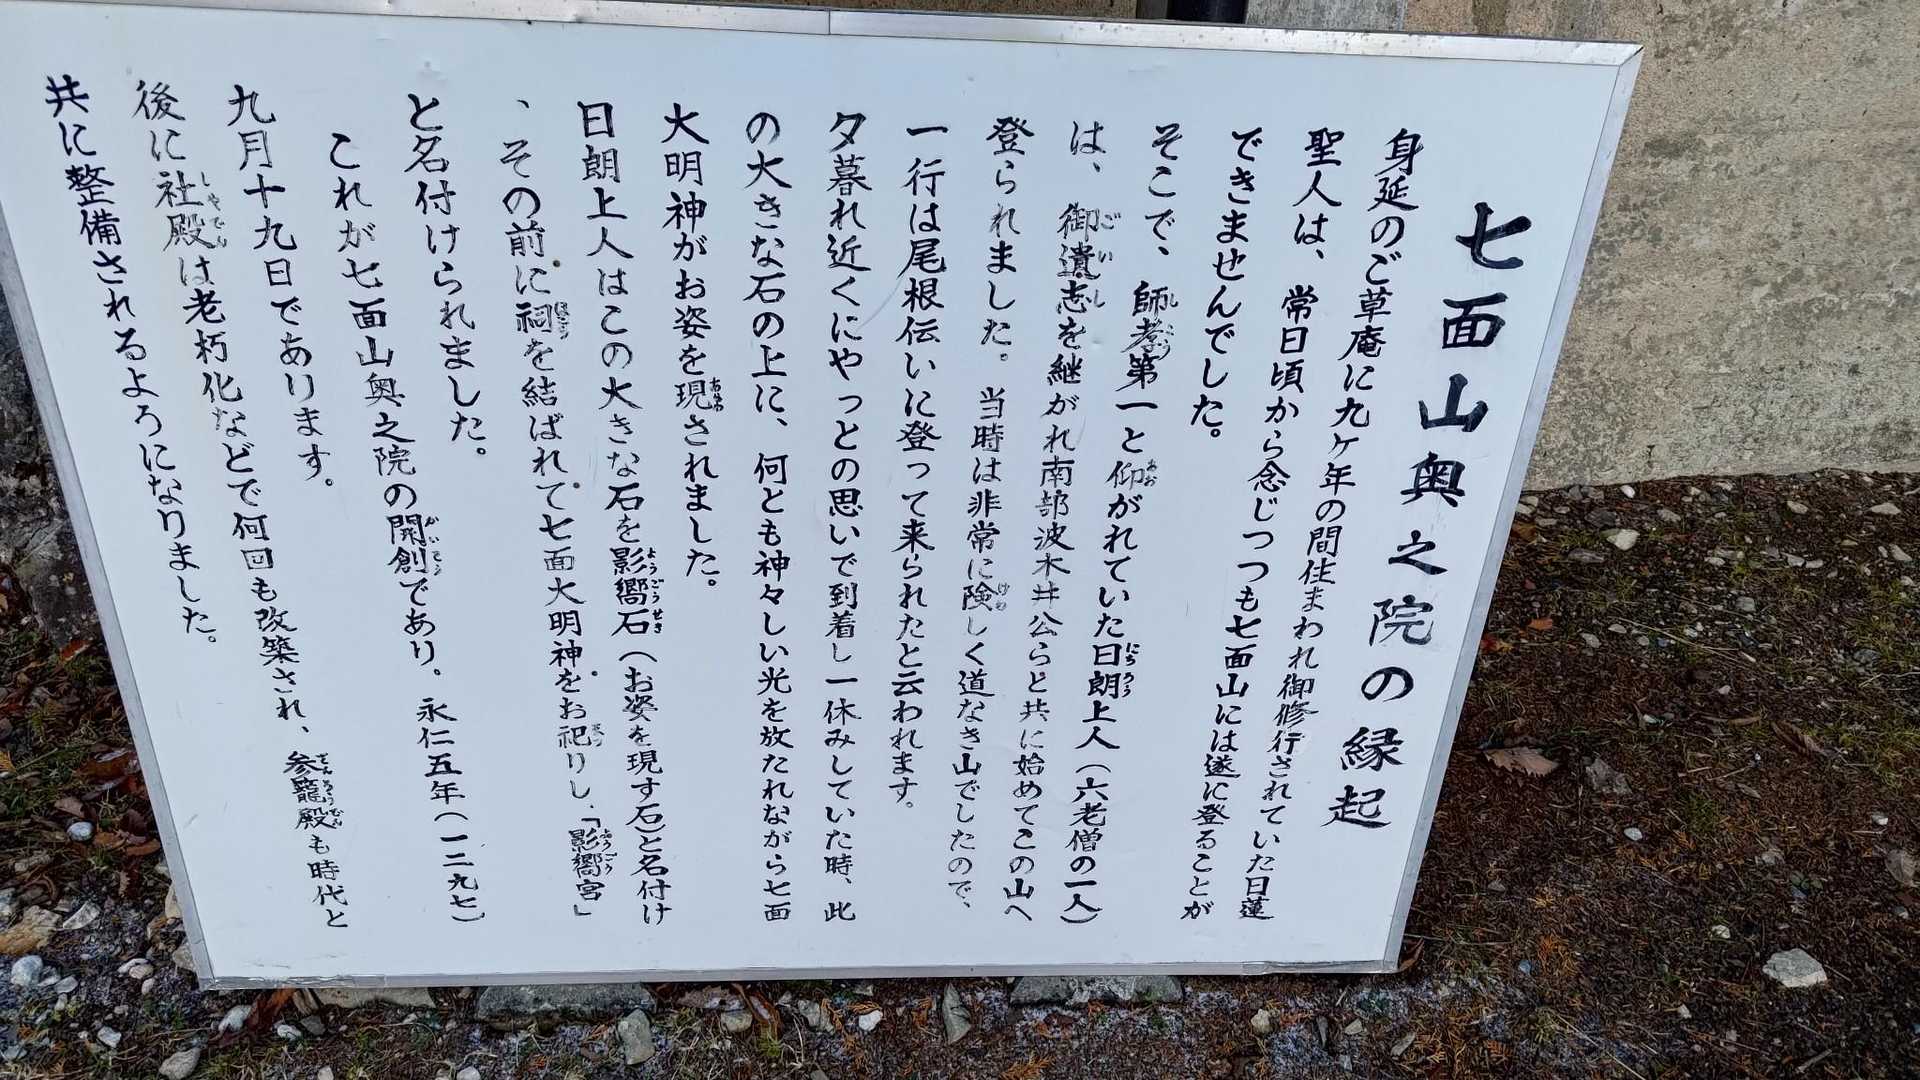 七面山奥之院の縁起
身延のご草庵に九ヶ年の間住まわれ御修行されていた日蓮
聖人は、常日頃から念じつつも七面山には遂に登ることが
できませんでした。
そこで、師孝第一と仰がれていた日朗上人(六老僧の一人)
は、御遺志を継がれ南部波木井公らと共に始めてこの山へ
登られました。当時は非常に険しく道なき山でしたので、
一行は尾根伝いに登って来られたと云われます。
夕暮れ近くにやっとの思いで到着し一休みしていた時、此
の大きな石の上に、何とも神々しい光を放たれながら七面
大明神がお姿を現されました。
日朗上人はこの大きな石を影嚮石(お姿を現す石)と名付け
、その前に祠を結ばれて七面大明神をお祀りし、「影嚮宮」
と名付けられました。
これが七面山奥之院の開創であり。永仁五年(一二九七)
九月十九日であります。
後に社殿は老朽化などで何回も改築され、参籠殿も時代と
共に整備されるようになりました。